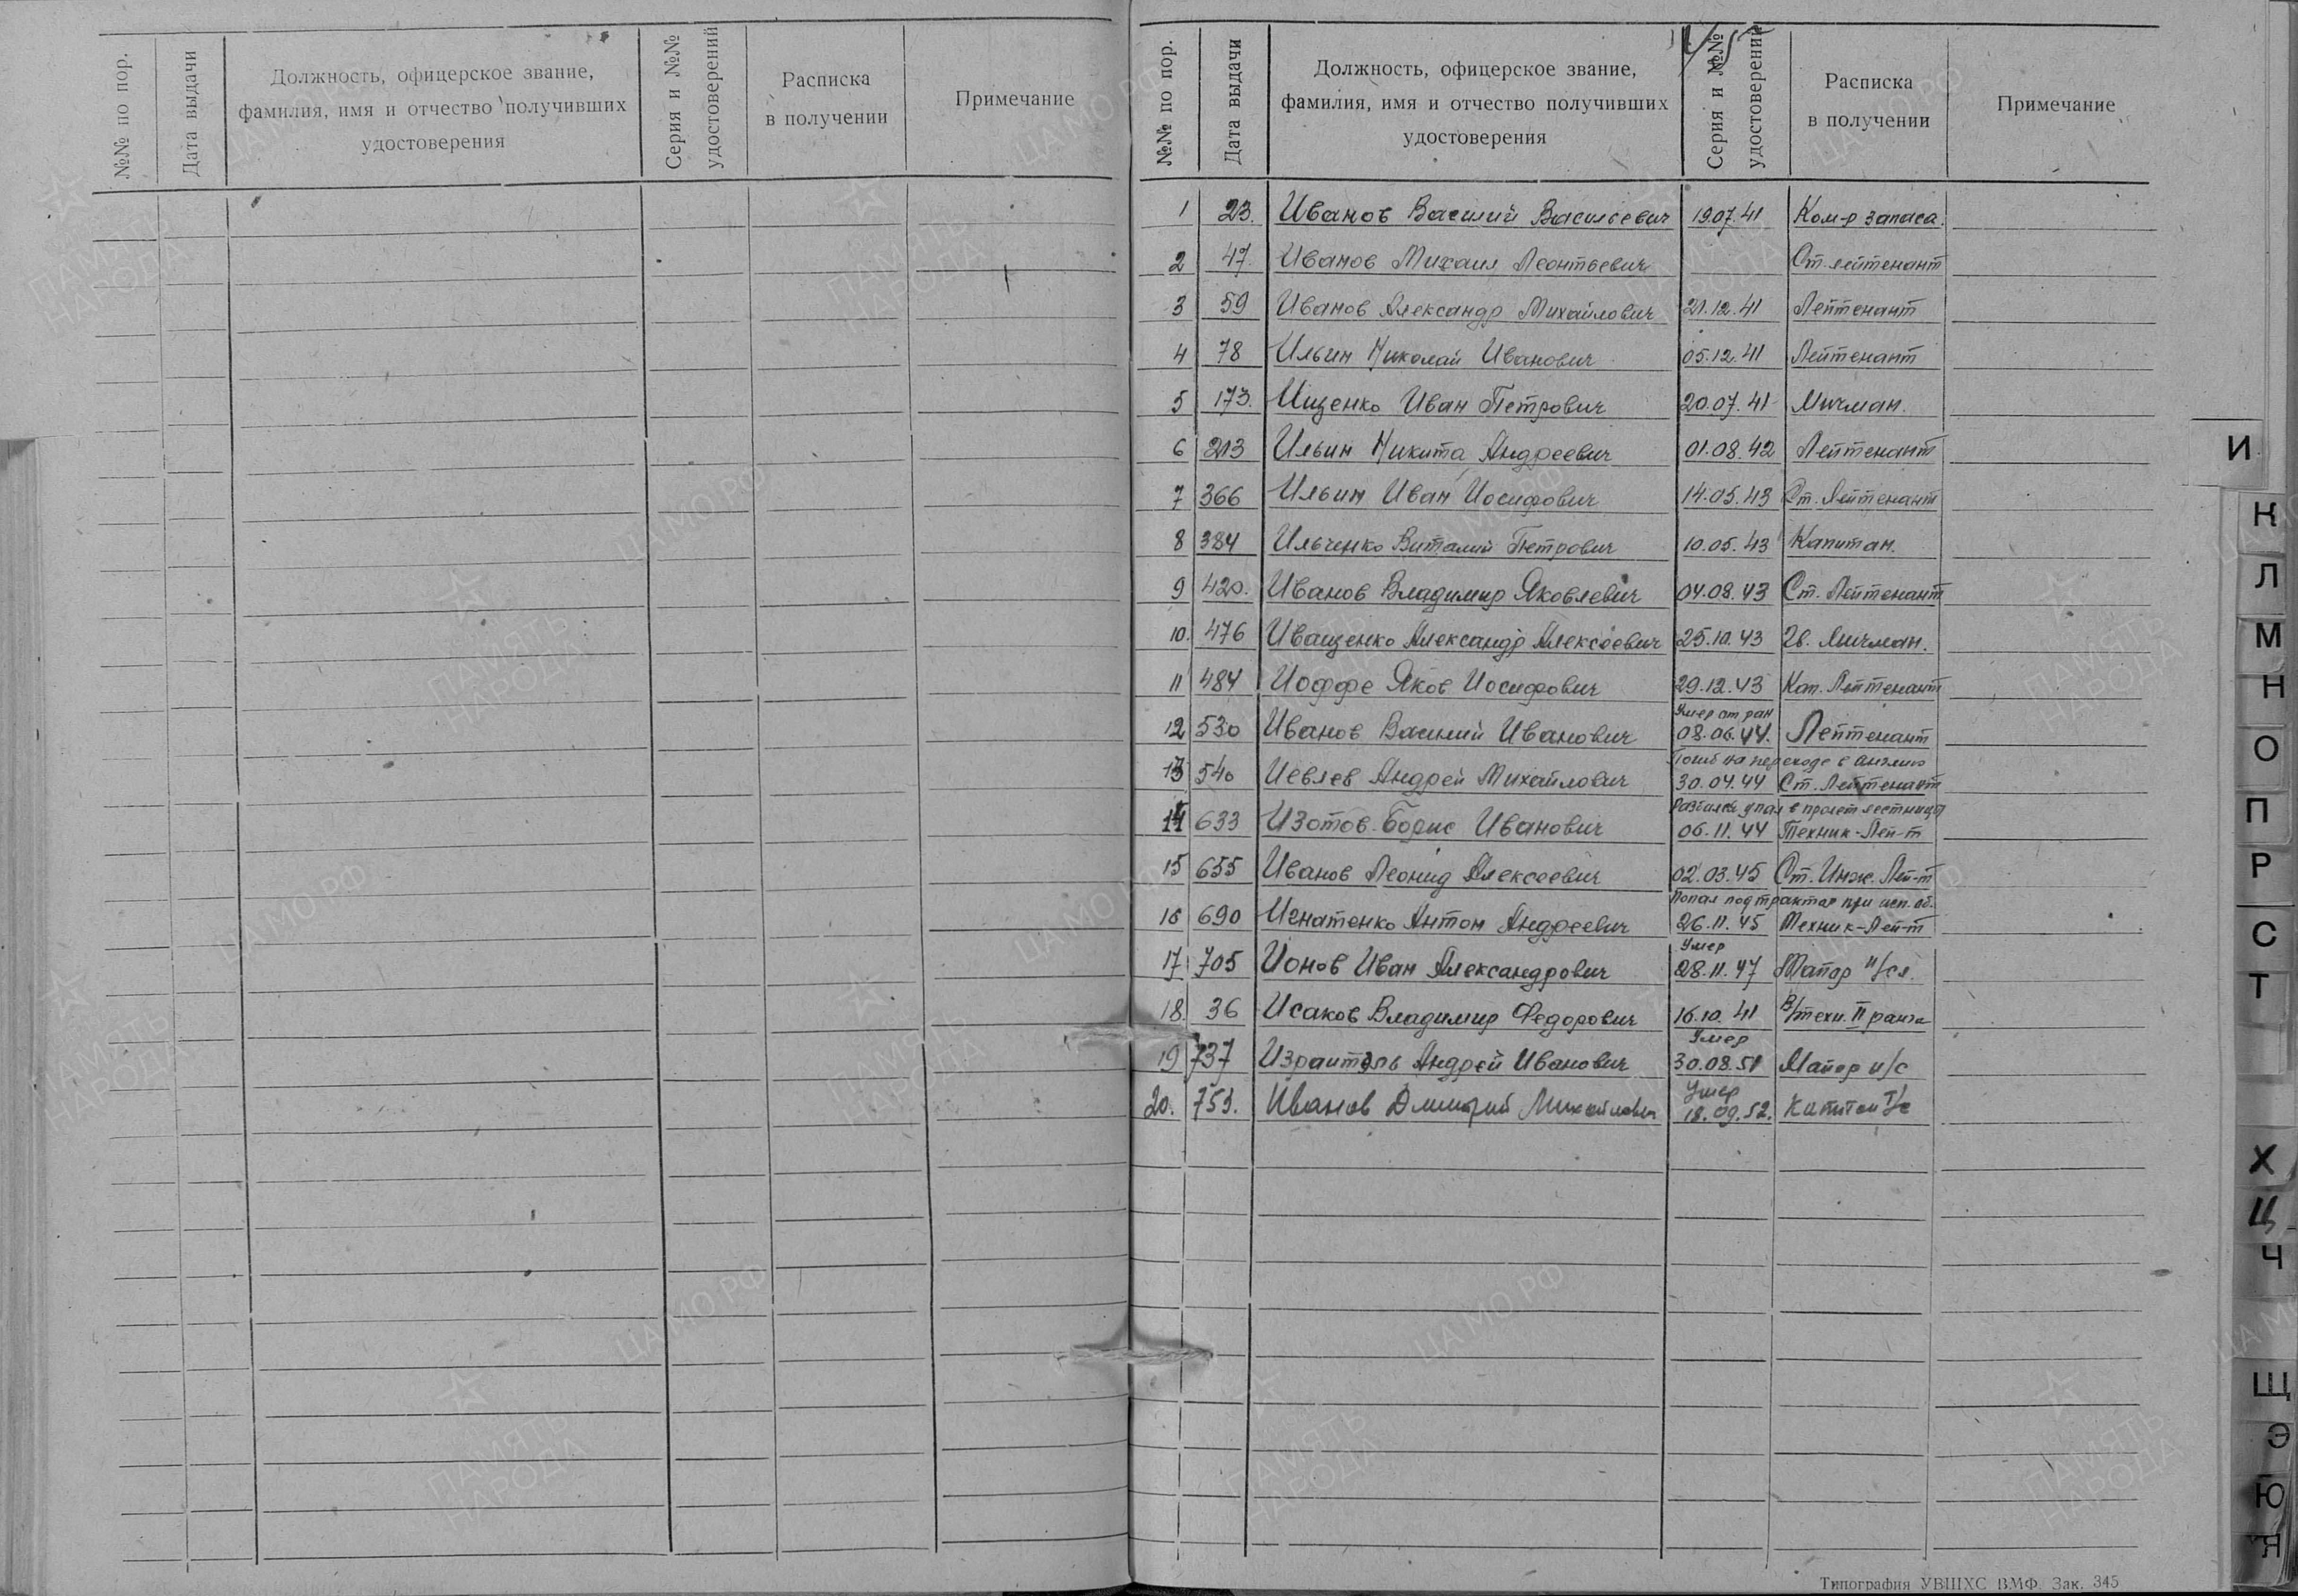 №№ по пор.
Дата выдачи
Должность, офицерское звание,
фамилия, имя и отчество получивших
удостоверения
Серия и №№
удостоверений
Расписка
в получении
Примечание
№№ по пор.
Дата выдачи
Должность, офицерское звание,
фамилия, имя и отчество получивших
удостоверения
Серия и №№
удостоверений
Расписка
в получении
Примечание
1 23. Иванов Василий Васильевич 19.07.41 Ком-р запаса.
2 47. Иванов Михаил Леонтьевич Ст. лейтенант
3 59 Иванов Александр Михайлович 21.12.41 Лейтенант
4 78 Ильин Николай Иванович 05.12.41 Лейтенант
5 173. Ищенко Иван Петрович 20.07.41 Мичман.
6 213 Ильин Никита Андреевич 01.08.42 Лейтенант
7 366 Ильин Иван Иосифович 14.05.43 Ст. Лейтенант
8 384 Ильченко Виталий Петрович 10.05.43 Капитан.
9 420. Иванов Владимир Яковлевич 04.08.43 Ст. Лейтенант
10. 476 Иващенко Александр Алексеевич 25.10.43 Гв. Мичман.
11 484 Иоффе Яков Иосифович 29.12.43 Кап. Лейтенант
Умер от ран
12 530 Иванов Василий Иванович 08.06.44. Лейтенант
Погиб на переходе в Англию
13 540 Иевлев Андрей Михайлович 30.04.44 Ст. Лейтенант
Разбился, упал в пролет лестницы
14 633 Изотов Борис Иванович 06.11.44 Техник-Лей-т
15 655 Иванов Леонид Алексеевич 02.03.45 Ст. Инж. Лей-т
Попал под трактор при исп. об.
16 690 Игнатенко Антон Андреевич 26.11.45 Техник-Лей-т
Умер
17 705 Ионов Иван Александрович 28.11.47 Майор и/сл.
18. 36 Исаков Владимир Федорович 16.10.41 В/техн. II ранга
Умер
19 737 Израитель Андрей Иванович 30.08.51 Майор и/с
Умер
20. 753. Иванов Дмитрий Михайлович 18.09.52. Капитан т/с
И
К
Л
М
Н
О
П
Р
С
Т
Х
Ц
Ч
Щ
Э
Ю
Я
Типография УВШХС ВМФ. Зак. 345
ПАМЯТЬ
НАРОДА
ЦА МО РФ